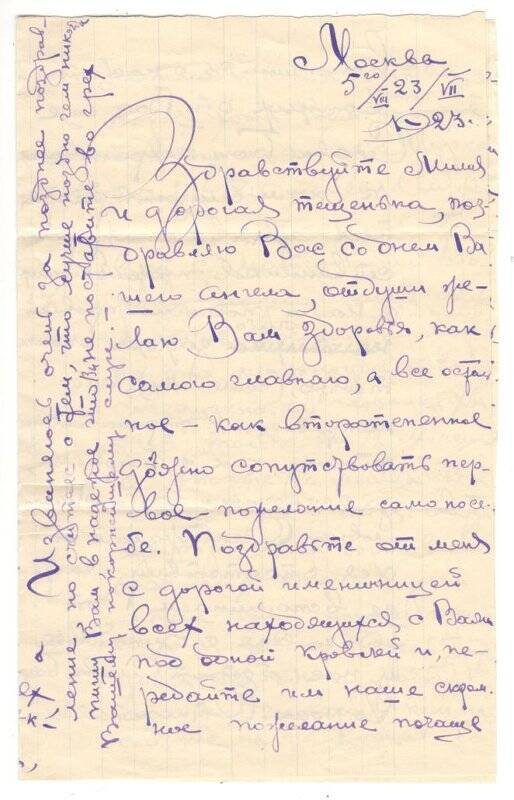 Москва
5го/VIII 23/VII
1923.
Здравствуйте Милая
и дорогая тещенька, поз-
дравляю Вас со днем Ва
шего ангела, отдуши же-
лаю Вам здоровья, как
самого главнаго, а все осталь
ное – как второтепенное
должно сопутствовать пер-
вое – пожелание само посе-
бе. Поздравьте от меня
с дорогой именинницей
всех находящихся с Вами
под одной кровлей и, пе-
редайте им наше скром
ное пожелание почаще
Извеняюсь очень за позднее поздрав-
ление но считаюсь с тем, что лучше поздно чем никогда
пишу Вам в надежде что Вы не поставите во грех
Вашему покорнейшему слуге.